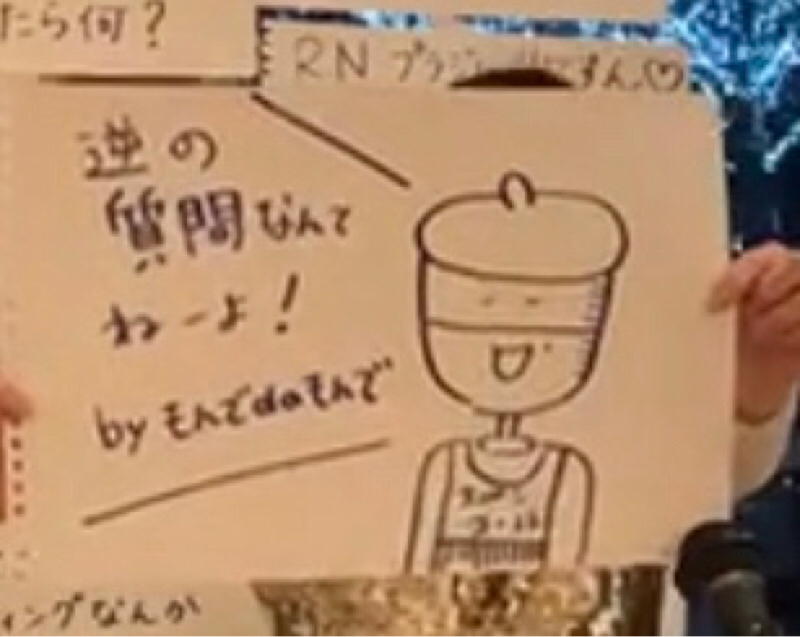 たら何？
RN ブラジ
すん♡
逆の
質問なんて
ねーよ！
by そんでdaそんで
ィングなんか